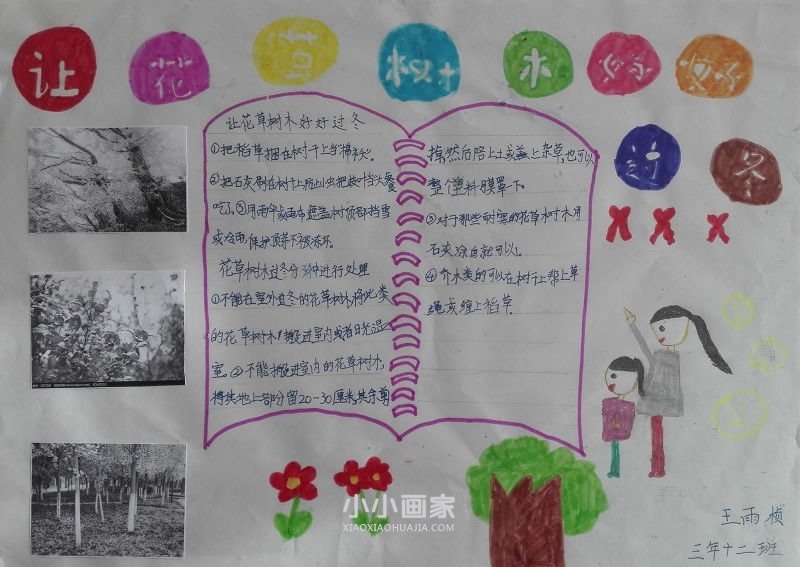 让花草树木好好过冬
让花草树木好好过冬
①把稻草捆在树干上当棉衣。
②把石灰刷在树干上防止小虫把树干当大餐
吃了。③用雨伞或雨布遮盖树顶部挡雪
或冷雨,保分顶芽不被冻坏。
花草树木过冬分3种进行处理
①不能在室外过冬的花草树木,将此类
的花草树木搬进室内或者日光温
室。②不能搬进室内的花草树木,
将其地上部分留20-30厘米,其余剪
掉,然后陪上土或盖上杂草,也可以
整个塑料膜罩下。
③对于那些耐寒的花草木树木用
石灰涂白就可以。
④乔木类的可以在树干上帮上草
绳或缠上稻草。
小小画家
XIAOXIAOHUAJIA.COM
王雨桢
三年十二班